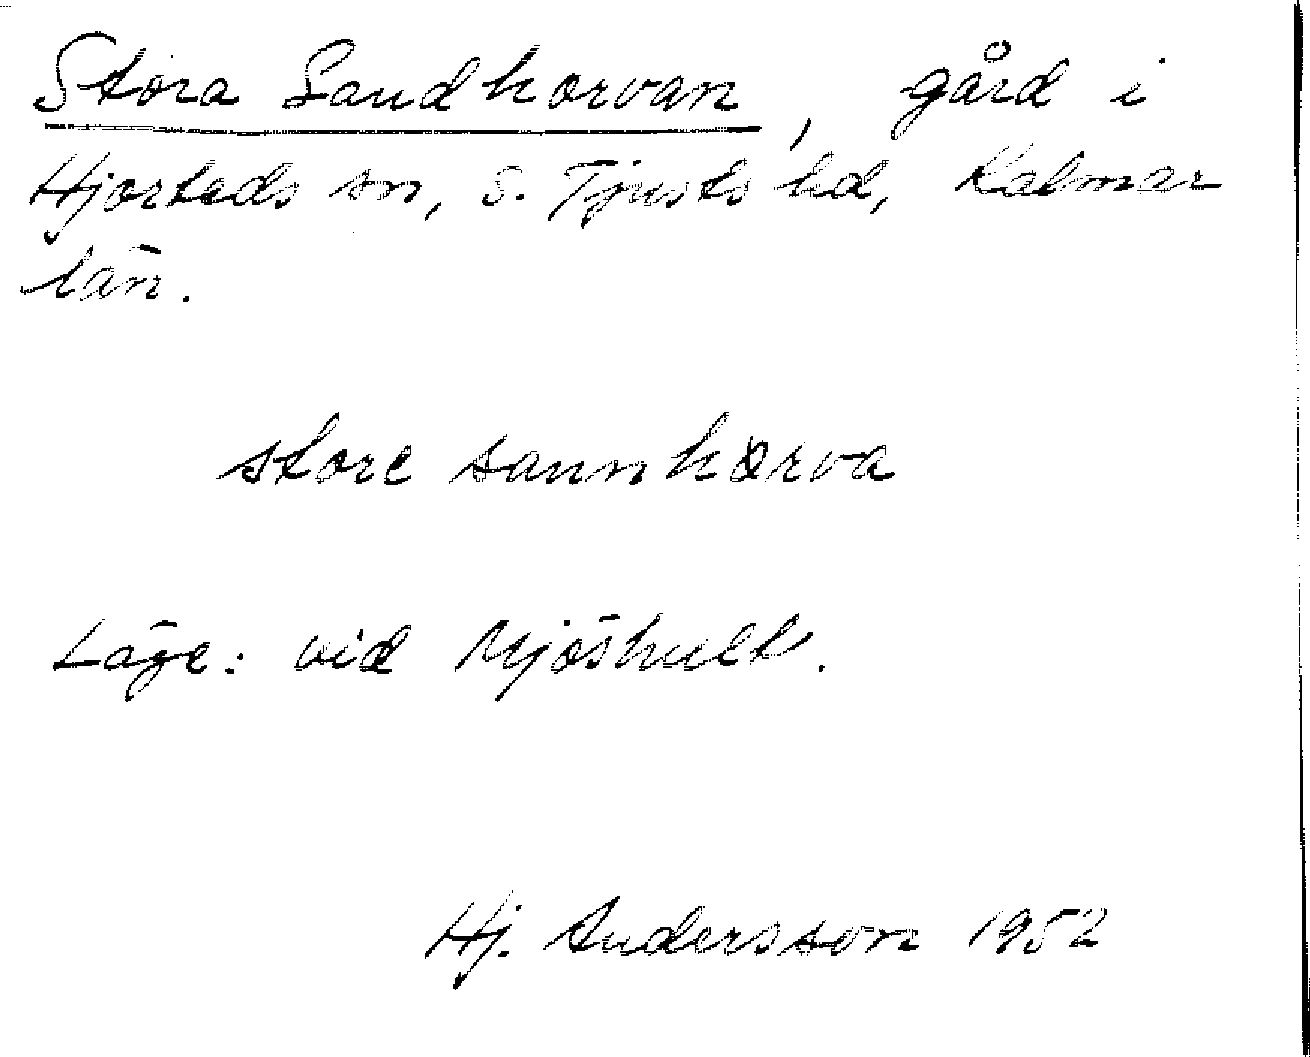 Stora Sandhorvan, gård i
Hjorteds sn, S. Tjusts hd, Kalmar
län.
store sannhorva
Läge: vid Mjöshult.
Hj. Andersson 1952